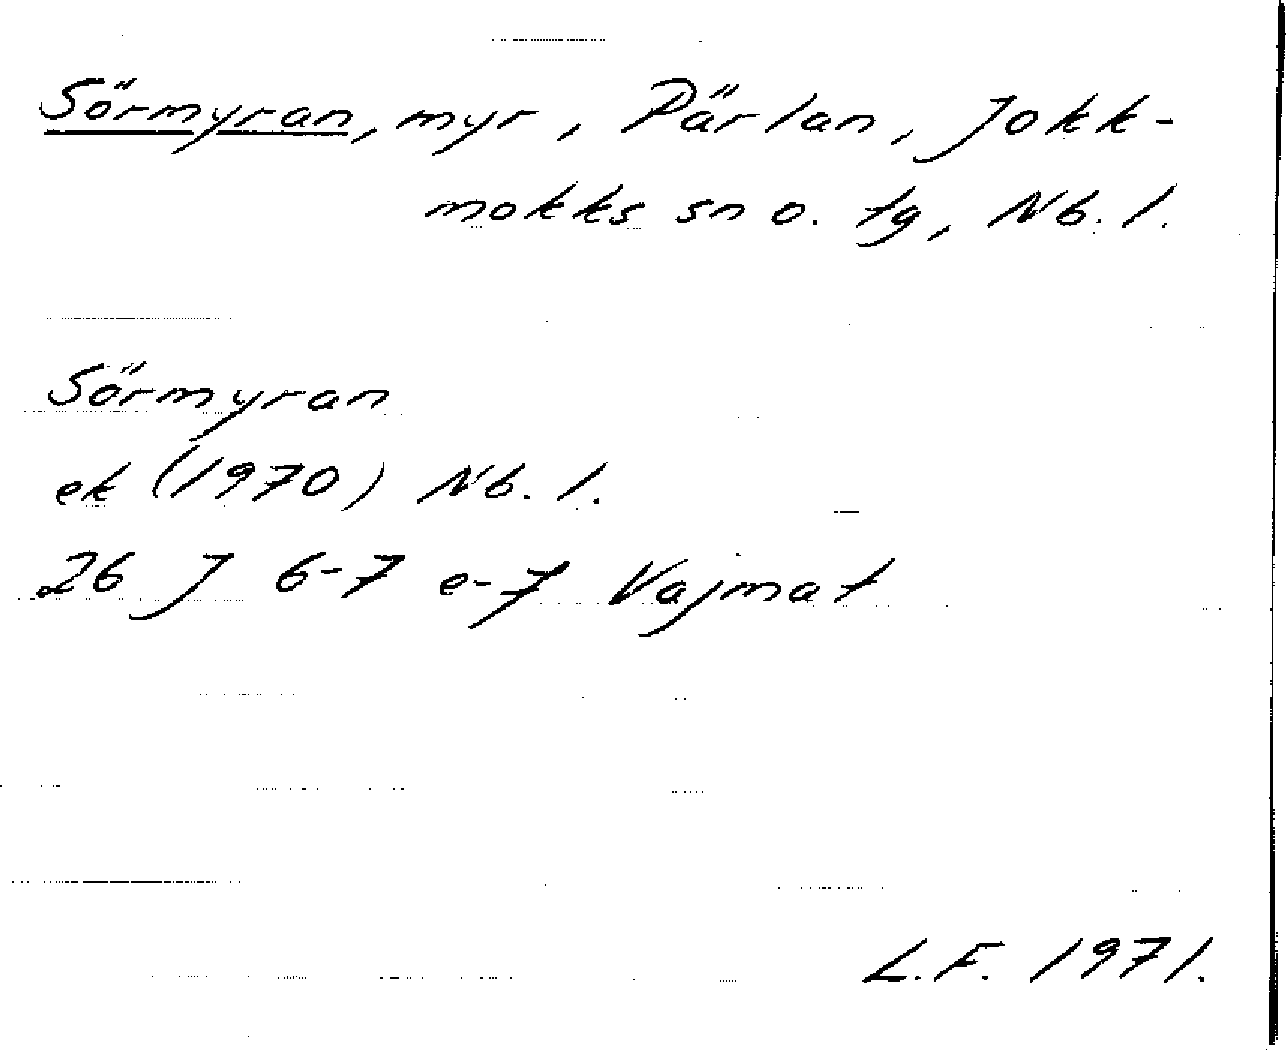 Sörmyran, myr, Pärlan, Jokk-
mokks sn o. tg, Nb. l.
Sörmyran
ek (1970) Nb. l.
26 J 6-7 e-f Vajmat
L.F. 1971.